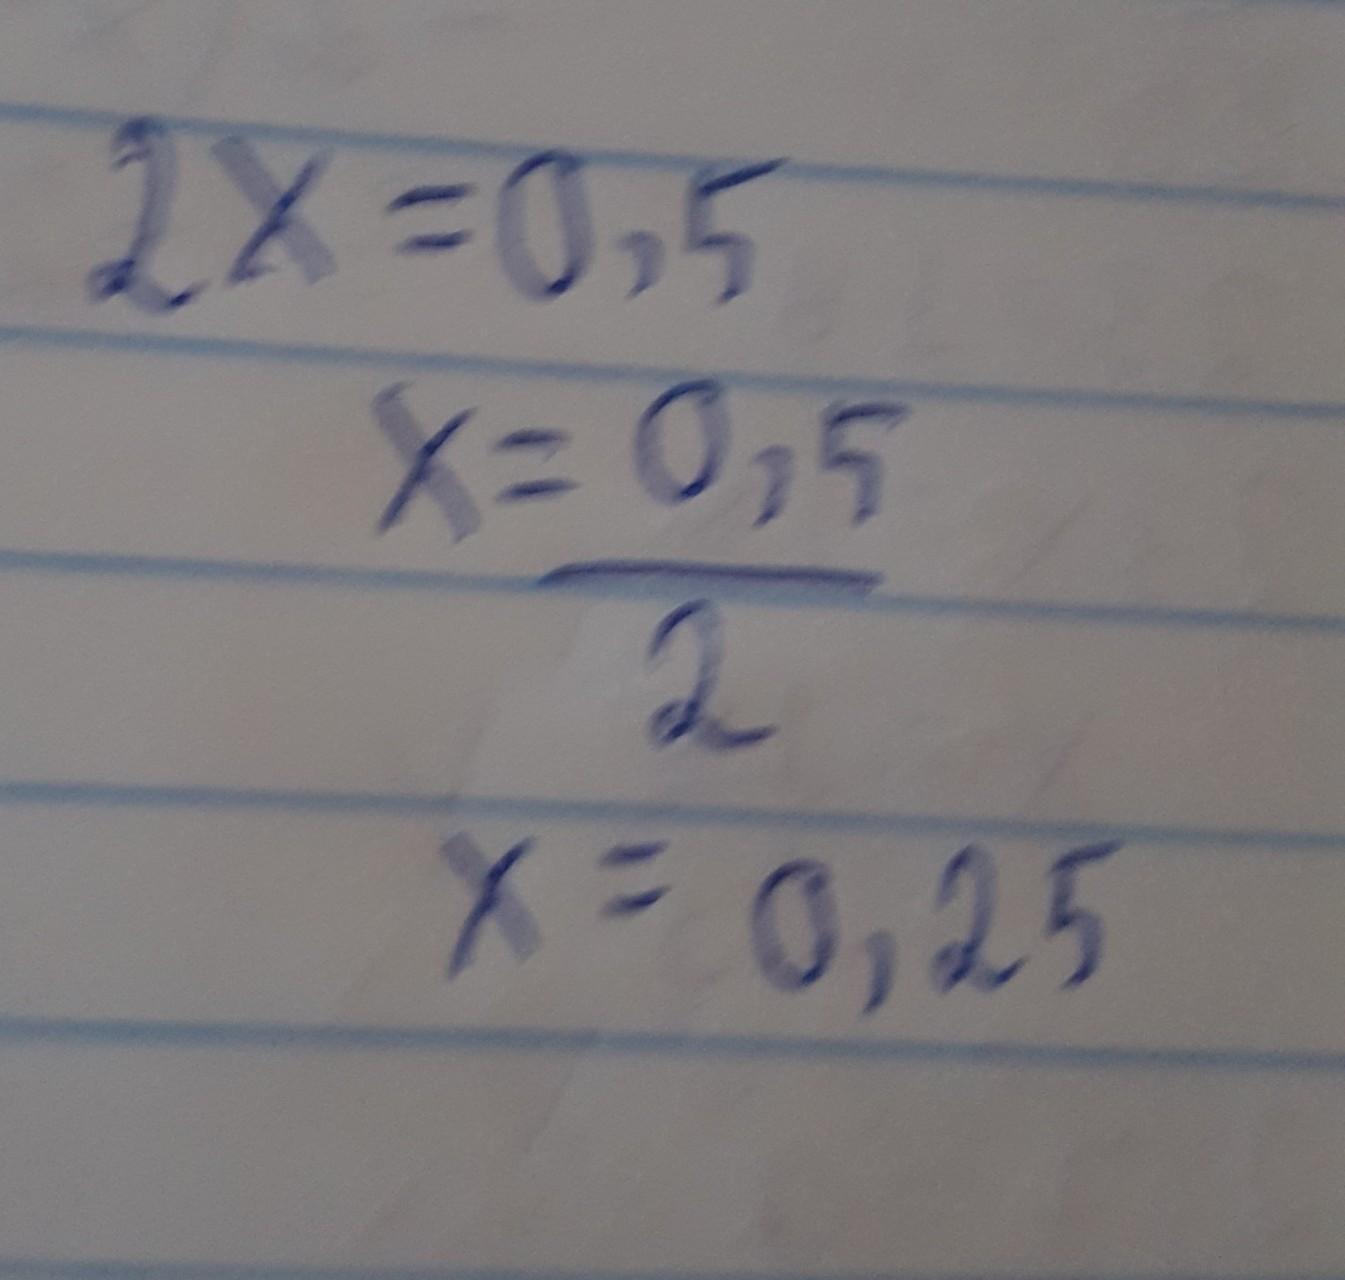 2x=0,5
x=0,5
2
x=0,25